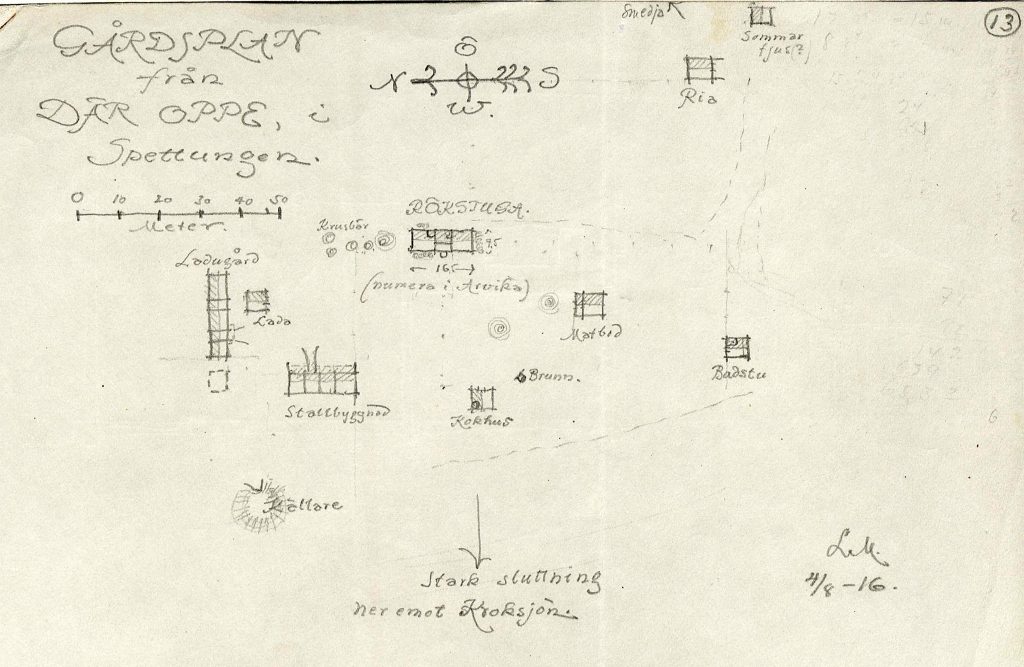 GÅRDSPLAN
från
DÄR OPPE, i
Spettungen.
0 10 20 30 40 50
Meter.
Ö
N S
W.
Smedja
Sommar
fjus(?)
13
Ria
RÖKSTUGA.
9,5
16,5
(numera i Arvika)
Krusbär
Ladugård
Lada
Stallbyggnad
Matbod
Brunn.
Kokhus
Badstu
Källare
Stark sluttning
ner emot Kroksjön.
L.M.
4/8 -16.